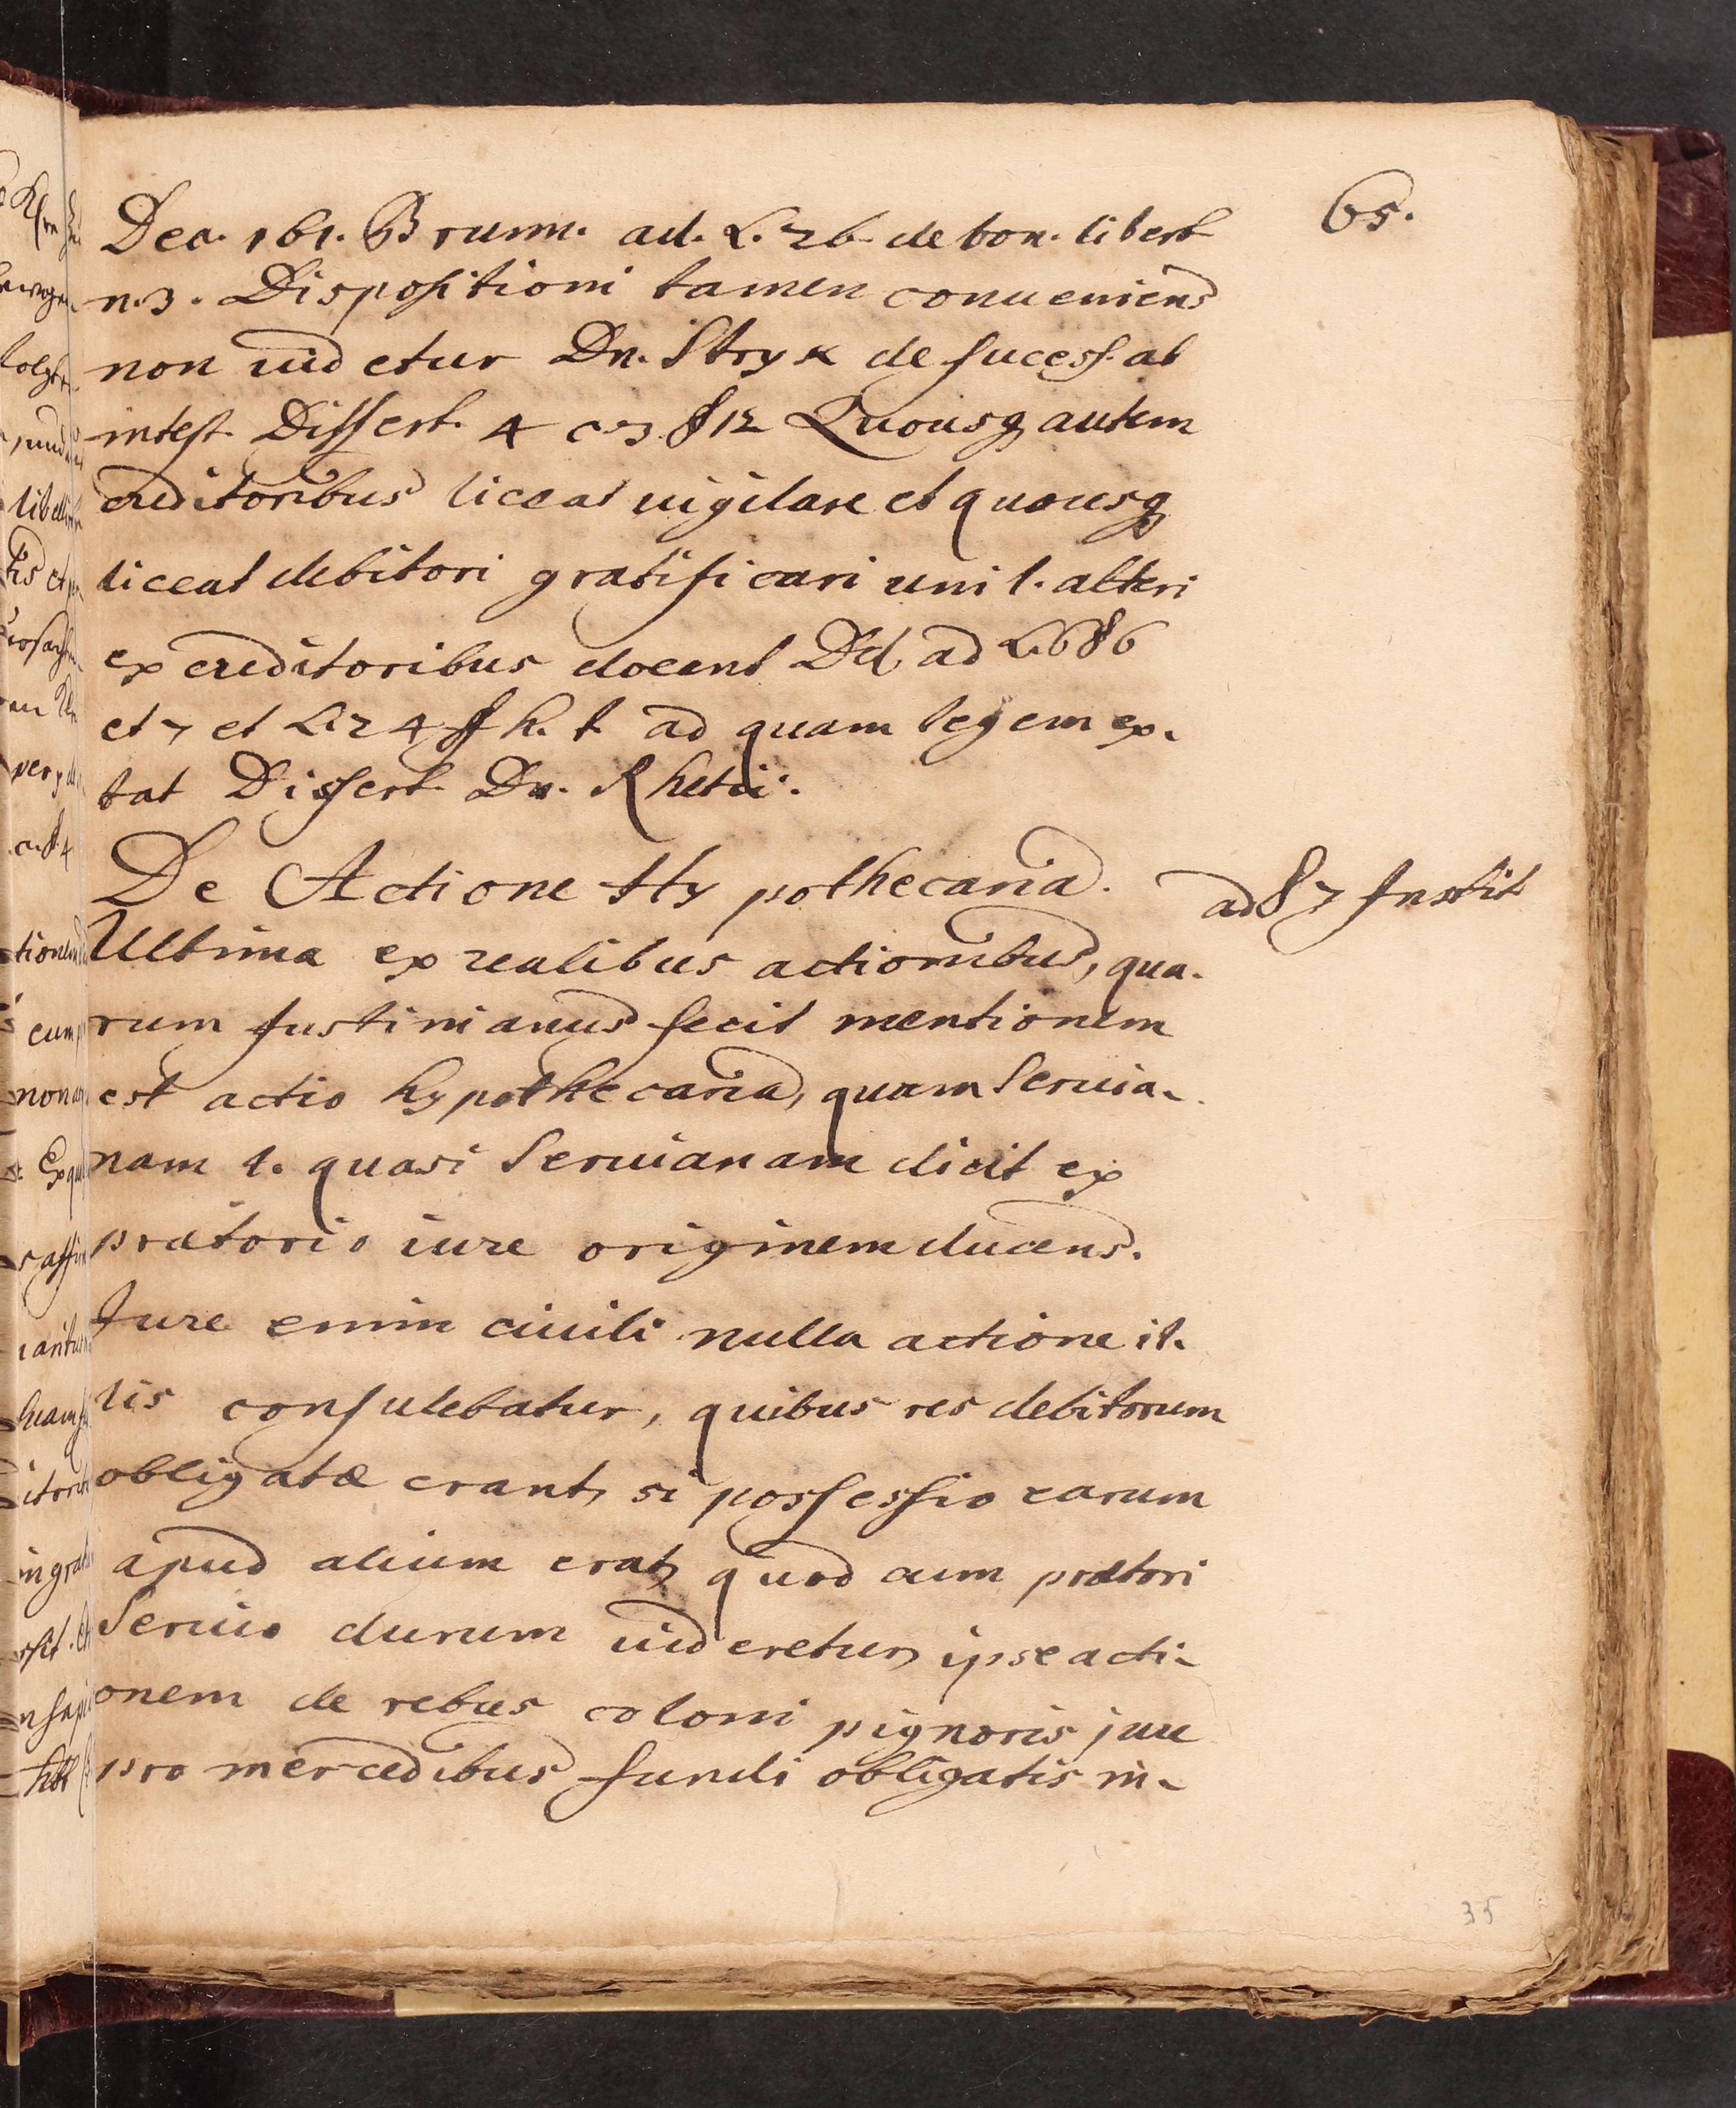 65.
Dec. 161. Brunn. ad. L. 26. de bon. libert
n. 3. Dispositioni tamen conueniens
non uidetur Dn. Stryk de sucess. ab
intest. Dissert. 4 c. 3. § 12 Quousq autem
creditoribus liceat uigilare et quousq
liceat debitori gratificari uni l. alteri
ex creditoribus docent Dd. ad L. 6 § 6
et 7 et L. 24 ff h. t. ad quam legem ex-
tat Dissert. Dn. Rhetii.
De Actione Hypothecaria. ad § 7 Instit
Ultima ex realibus actionibus, qua-
rum Justinianus fecit mentionem
est actio hypothecaria, quam Seruia-
nam l. quasi Seruianam dicit ex
prætorio iure originem ducens.
Jure enim ciuili nulla actione il-
lis consulebatur, quibus res debitorum
obligatæ erant, si possessio earum
apud alium erat, quod cum prætori
Seruio durum uideretur, ipse acti-
onem de rebus coloni pignoris jure
pro mercedibus fundi obligatis in-
35